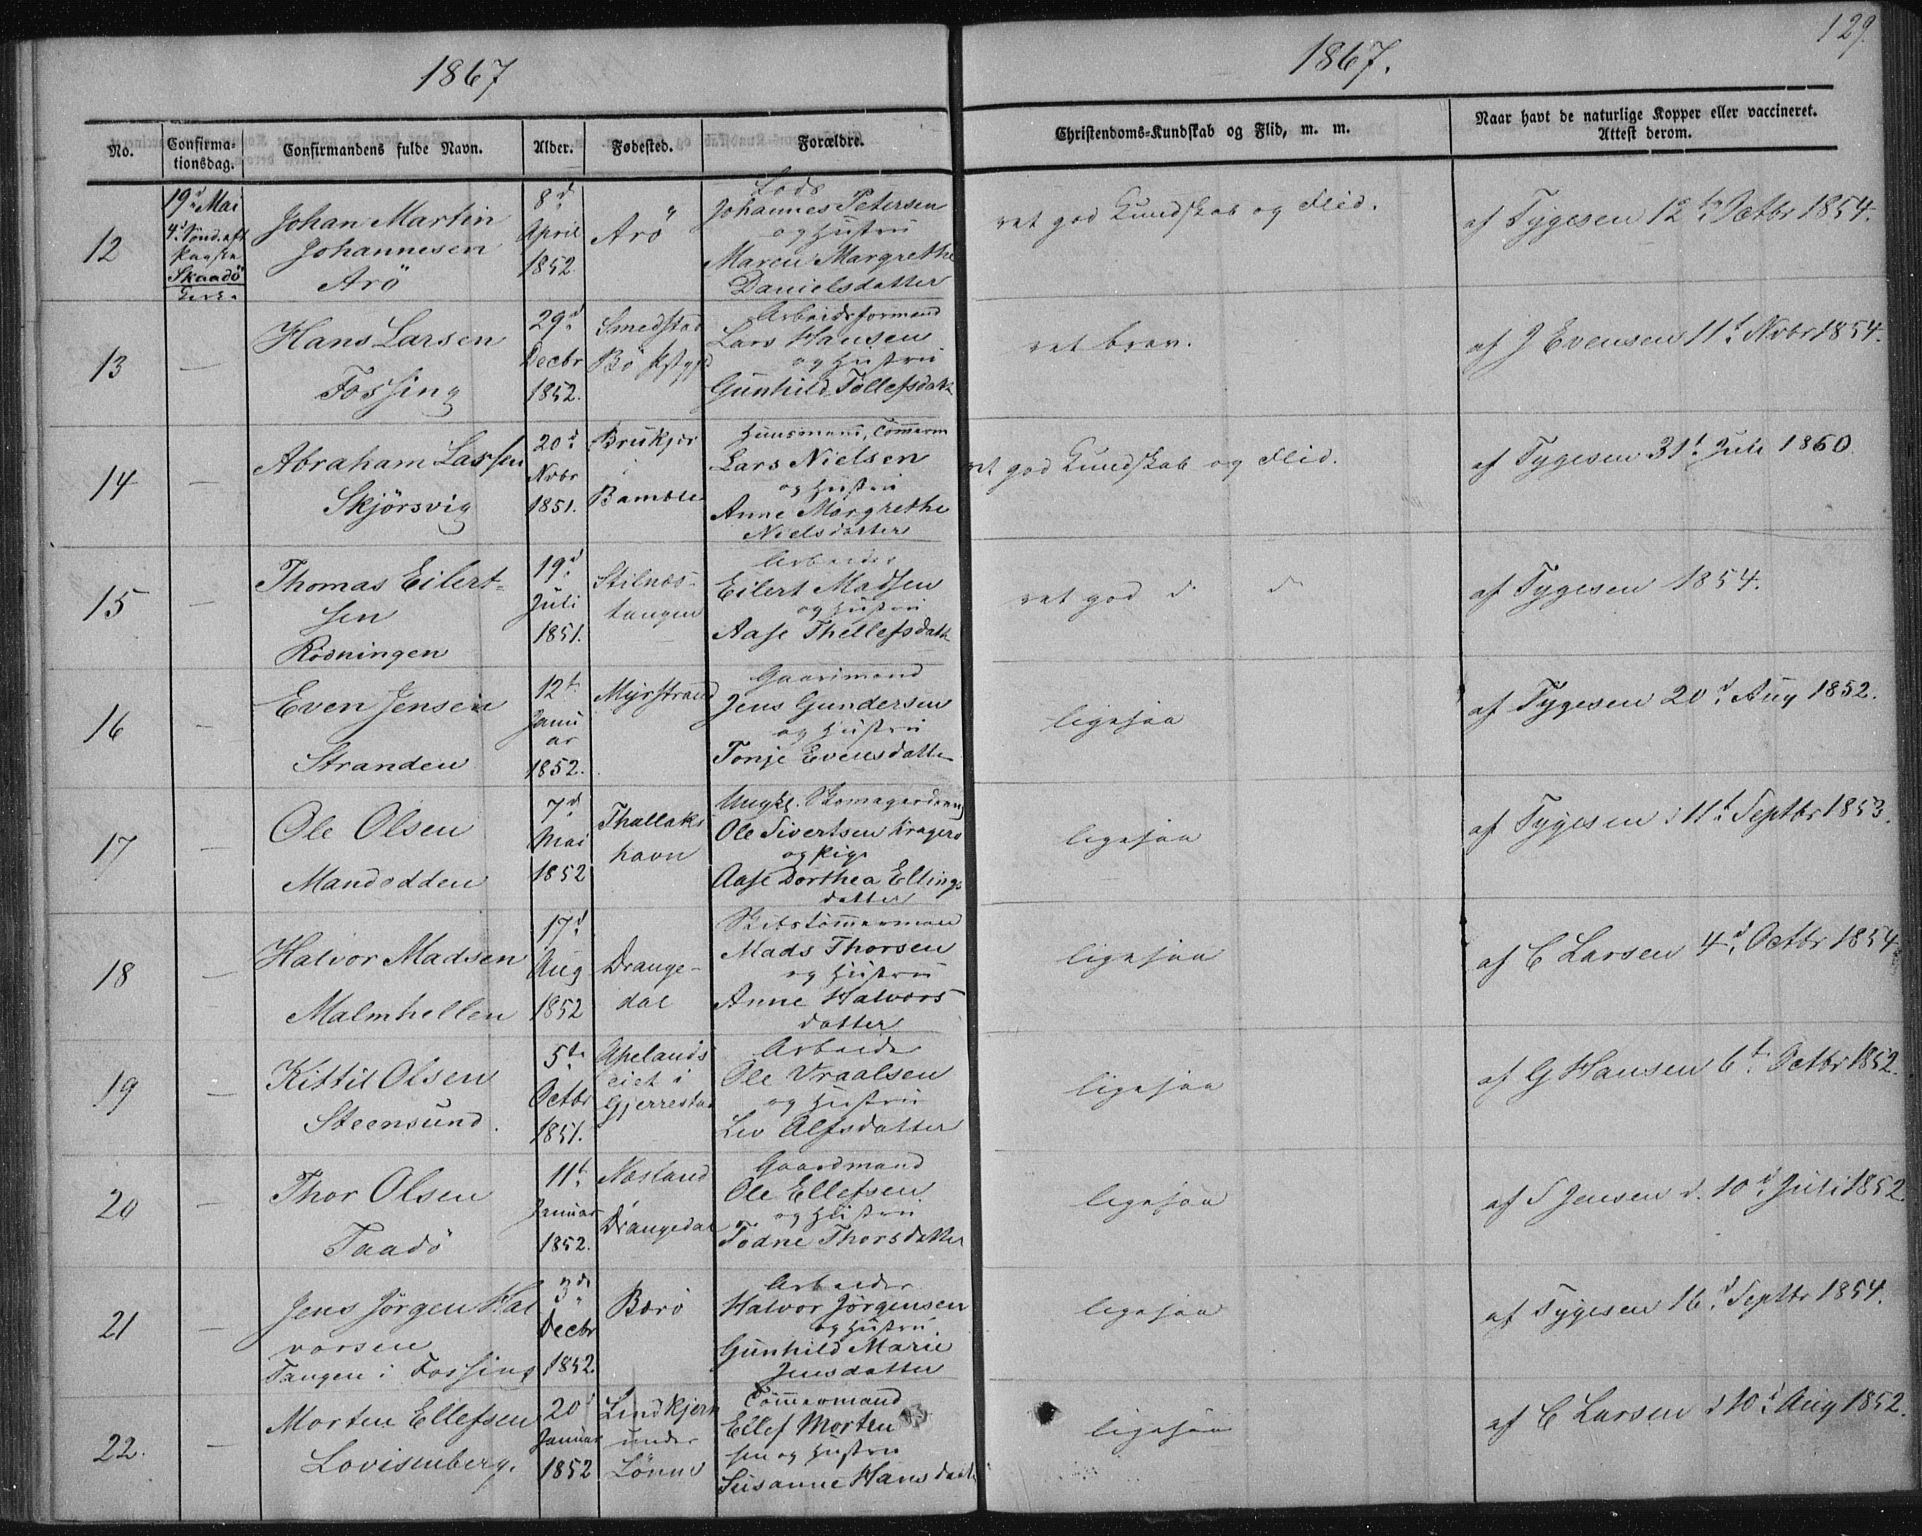 129
1867
1867.
No.
Confirma-
tionsdag.
Confirmandens fulde Navn.
Alder.
Fødested.
Forældre.
Christendoms-Kundskab og Flid, m. m.
Naar havt de naturlige Kopper eller vaccineret.
Attest derom.
12
19d Mai
4d Sönd. eft
Paaske
Skaadö
Kirke
Johan Martin
Johannesen
Arö
8d
April
1852
Arö
Lods
Johannes Petersen
og Hustru
Maren Margrethe
Danielsdatter
ret god Kundskab og Flid.
af Tygesen 12te Octbr 1854.
13
—
Hans Larsen
Fossing
29d
Decbr
1852.
Smedstad
Bö
Arbeidsformand
Lars Hansen
og Hustru
Gunhild Tollefsdatt
ret brav.
af J Evensen 11t Nvbr 1854.
14
—
Abraham Larsen
Skjörsvig
20d
Nvbr
1851.
Brukjær
i
Bamble
Huusmand, Tömerm
Lars Nielsen
og Hustru
Anne Margrethe
Nielsdatter
ret god Kundskab og Flid.
af Tygesen 31t Juli 1860
15
—
Thomas Eilert-
sen
Rödningen
19d
Juli
1851.
Stilnæs-
tangen
Arbeider
Eilert Madsen
og Hustru
Aase Thellefsdatt
ret god d d
af Tygesen 1854.
16
—
Even Jensen
Stranden
12t
Janu
ar
1852.
Myrstrand
Gaardmand
Jens Gundersen
og Hustru
Tonje Evensdatter
ligesaa
af Tygesen 20d Aug 1852.
17
—
Ole Olsen
Mandodden
7d
Mai
1852
Thallaks
havn
Ungkl. Skomagerdreng
Ole Sivertsen Kragerö
og Pige
Aase Dorthea Ellings
datter
ligesaa
af Tygesen d 11t Septbr 1853.
18
—
Halvor Madsen
Malmhellen
17d
Aug
1852
Drange-
dal
Skibstömmermand
Mads Thorsen
og Hustru
Anne Halvors
datter
ligesaa
af C Larsen 4d Octbr 1854
19
—
Kittil Olsen
Steensund.
5te
Octbr
1851.
Apelands
eiet i
Gjerrestad
Arbeider
Ole Vraalsen
og Hustru
Liv Alfsdatter
ligesaa
af G Hansen 6te Octbr 1852.
20
—
Thor Olsen
Taadö
11t
Januar
1852.
Næsland
i
Drangedal
Gaardmand
Ole Ellefsen
og Hustru
Todne Thorsdatter
ligesaa
af S Jensen d. 10d Juli 1852.
21
—
Jens Jörgen Hal
vorsen
Tangen i Fossing
3de
Decbr
1852.
Barö
Arbeider
Halvor Jörgensen
og Hustru
Gunhild Marie
Jensdatter
ligesaa
af Tygesen 16d Septbr 1854.
22.
—
Morten Ellefsen
Lovisenberg.
20d
Januar
1852
Lindkjern
under
Lönne
Tömmermand
Ellef Morten
sen og Hustru
Susanne Hansdatt
ligesaa
af C Larsen d 10d Aug 1852.